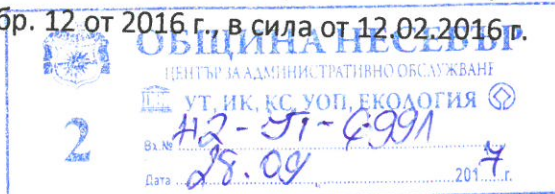 бр. 12 от 2016 г., в сила от 12.02.2016 г.
ОБЩИНА НЕСЕБЪР
ЦЕНТЪР ЗА АДМИНИСТРАТИВНО ОБСЛУЖВАНЕ
УТ, ИК, КС, УОП, ЕКОЛОГИЯ
2
Вх. №
Дата 28.09 2017 г.